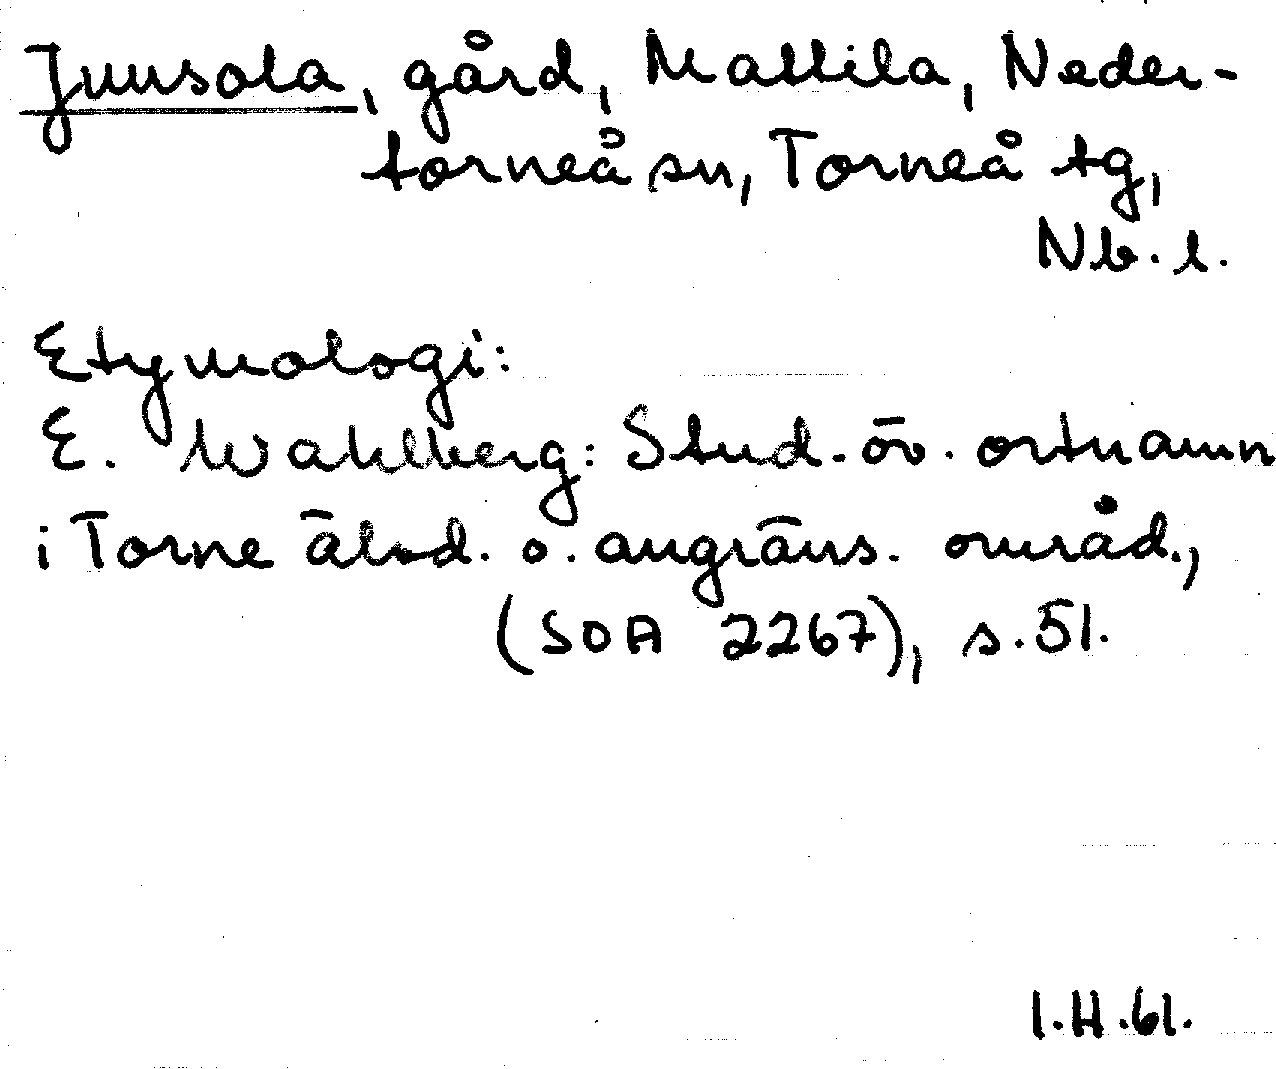 Juusola, gård, Mattila, Neder-
torneå sn, Torneå tg,
Nb. l.
Etymologi:
E. Wahlberg: Stud. öv. ortnamn
i Torne älvd. o. angräns. områd.,
(SOA 2267), s. 51.
I.H.61.